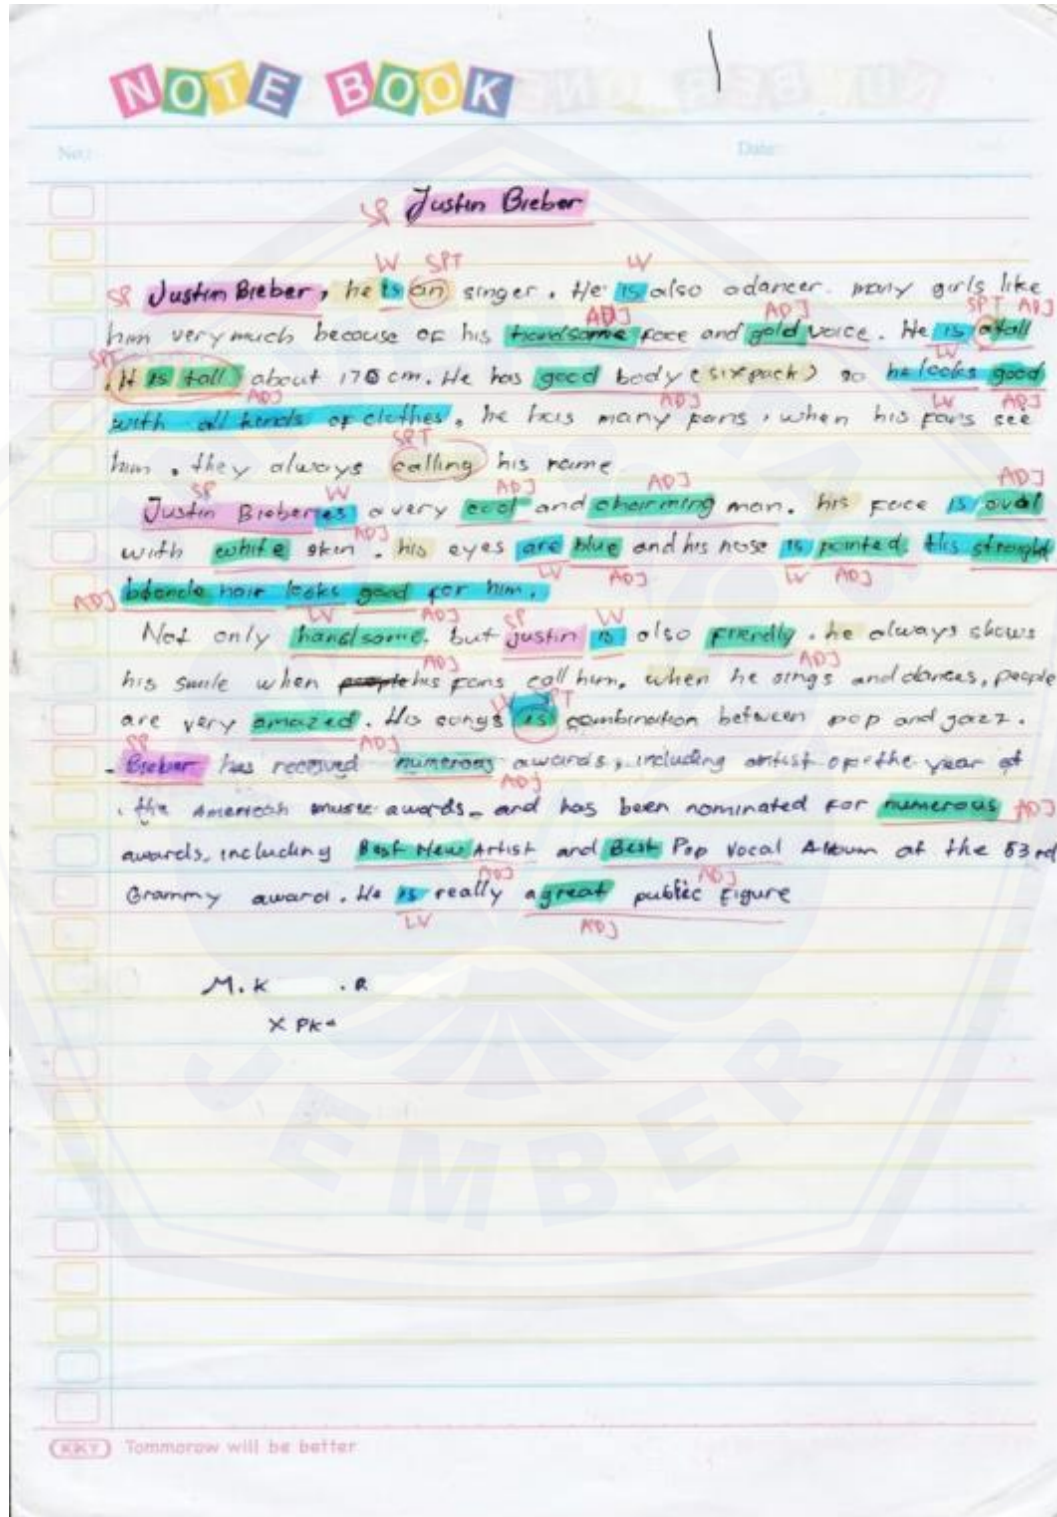 NOTE BOOK
No.: Date:
SP Justin Bieber
LV SPT LV
SP Justin Bieber, he is an singer. He is also a dancer. many girls like
ADJ ADJ SPT ADJ
him very much because of his handsome face and gold voice. He is a tall
SPT LV
. It is tall about 170 cm. He has good body (sixpack) so he looks good
ADJ ADJ LV ADJ
with all kinds of clothes. he has many fans, when his fans see
SPT
him, they always calling his name
SP LV ADJ ADJ ADJ
Justin Bieber is a very cool and charming man. his face is oval
ADJ
with white skin. his eyes are blue and his nose is pointed. His straight
LV ADJ LV ADJ
ADJ blonde hair looks good for him.
LV ADJ SP LV
Not only handsome, but justin is also friendly. he always shows
ADJ ADJ
his smile when people his fans call him, when he sings and dances, people
LV SPT
are very amazed. His songs is combination between pop and jazz.
SP ADJ
- Bieber has received numerous awards, including artist of the year at
ADJ
. the American music awards, and has been nominated for numerous ADJ
awards, including Best New Artist and Best Pop Vocal Album at the 53rd
ADJ ADJ
Grammy award. He is really a great public figure
LV ADJ
M.K .R
X PK
JEMBER
KKY Tommorow will be better